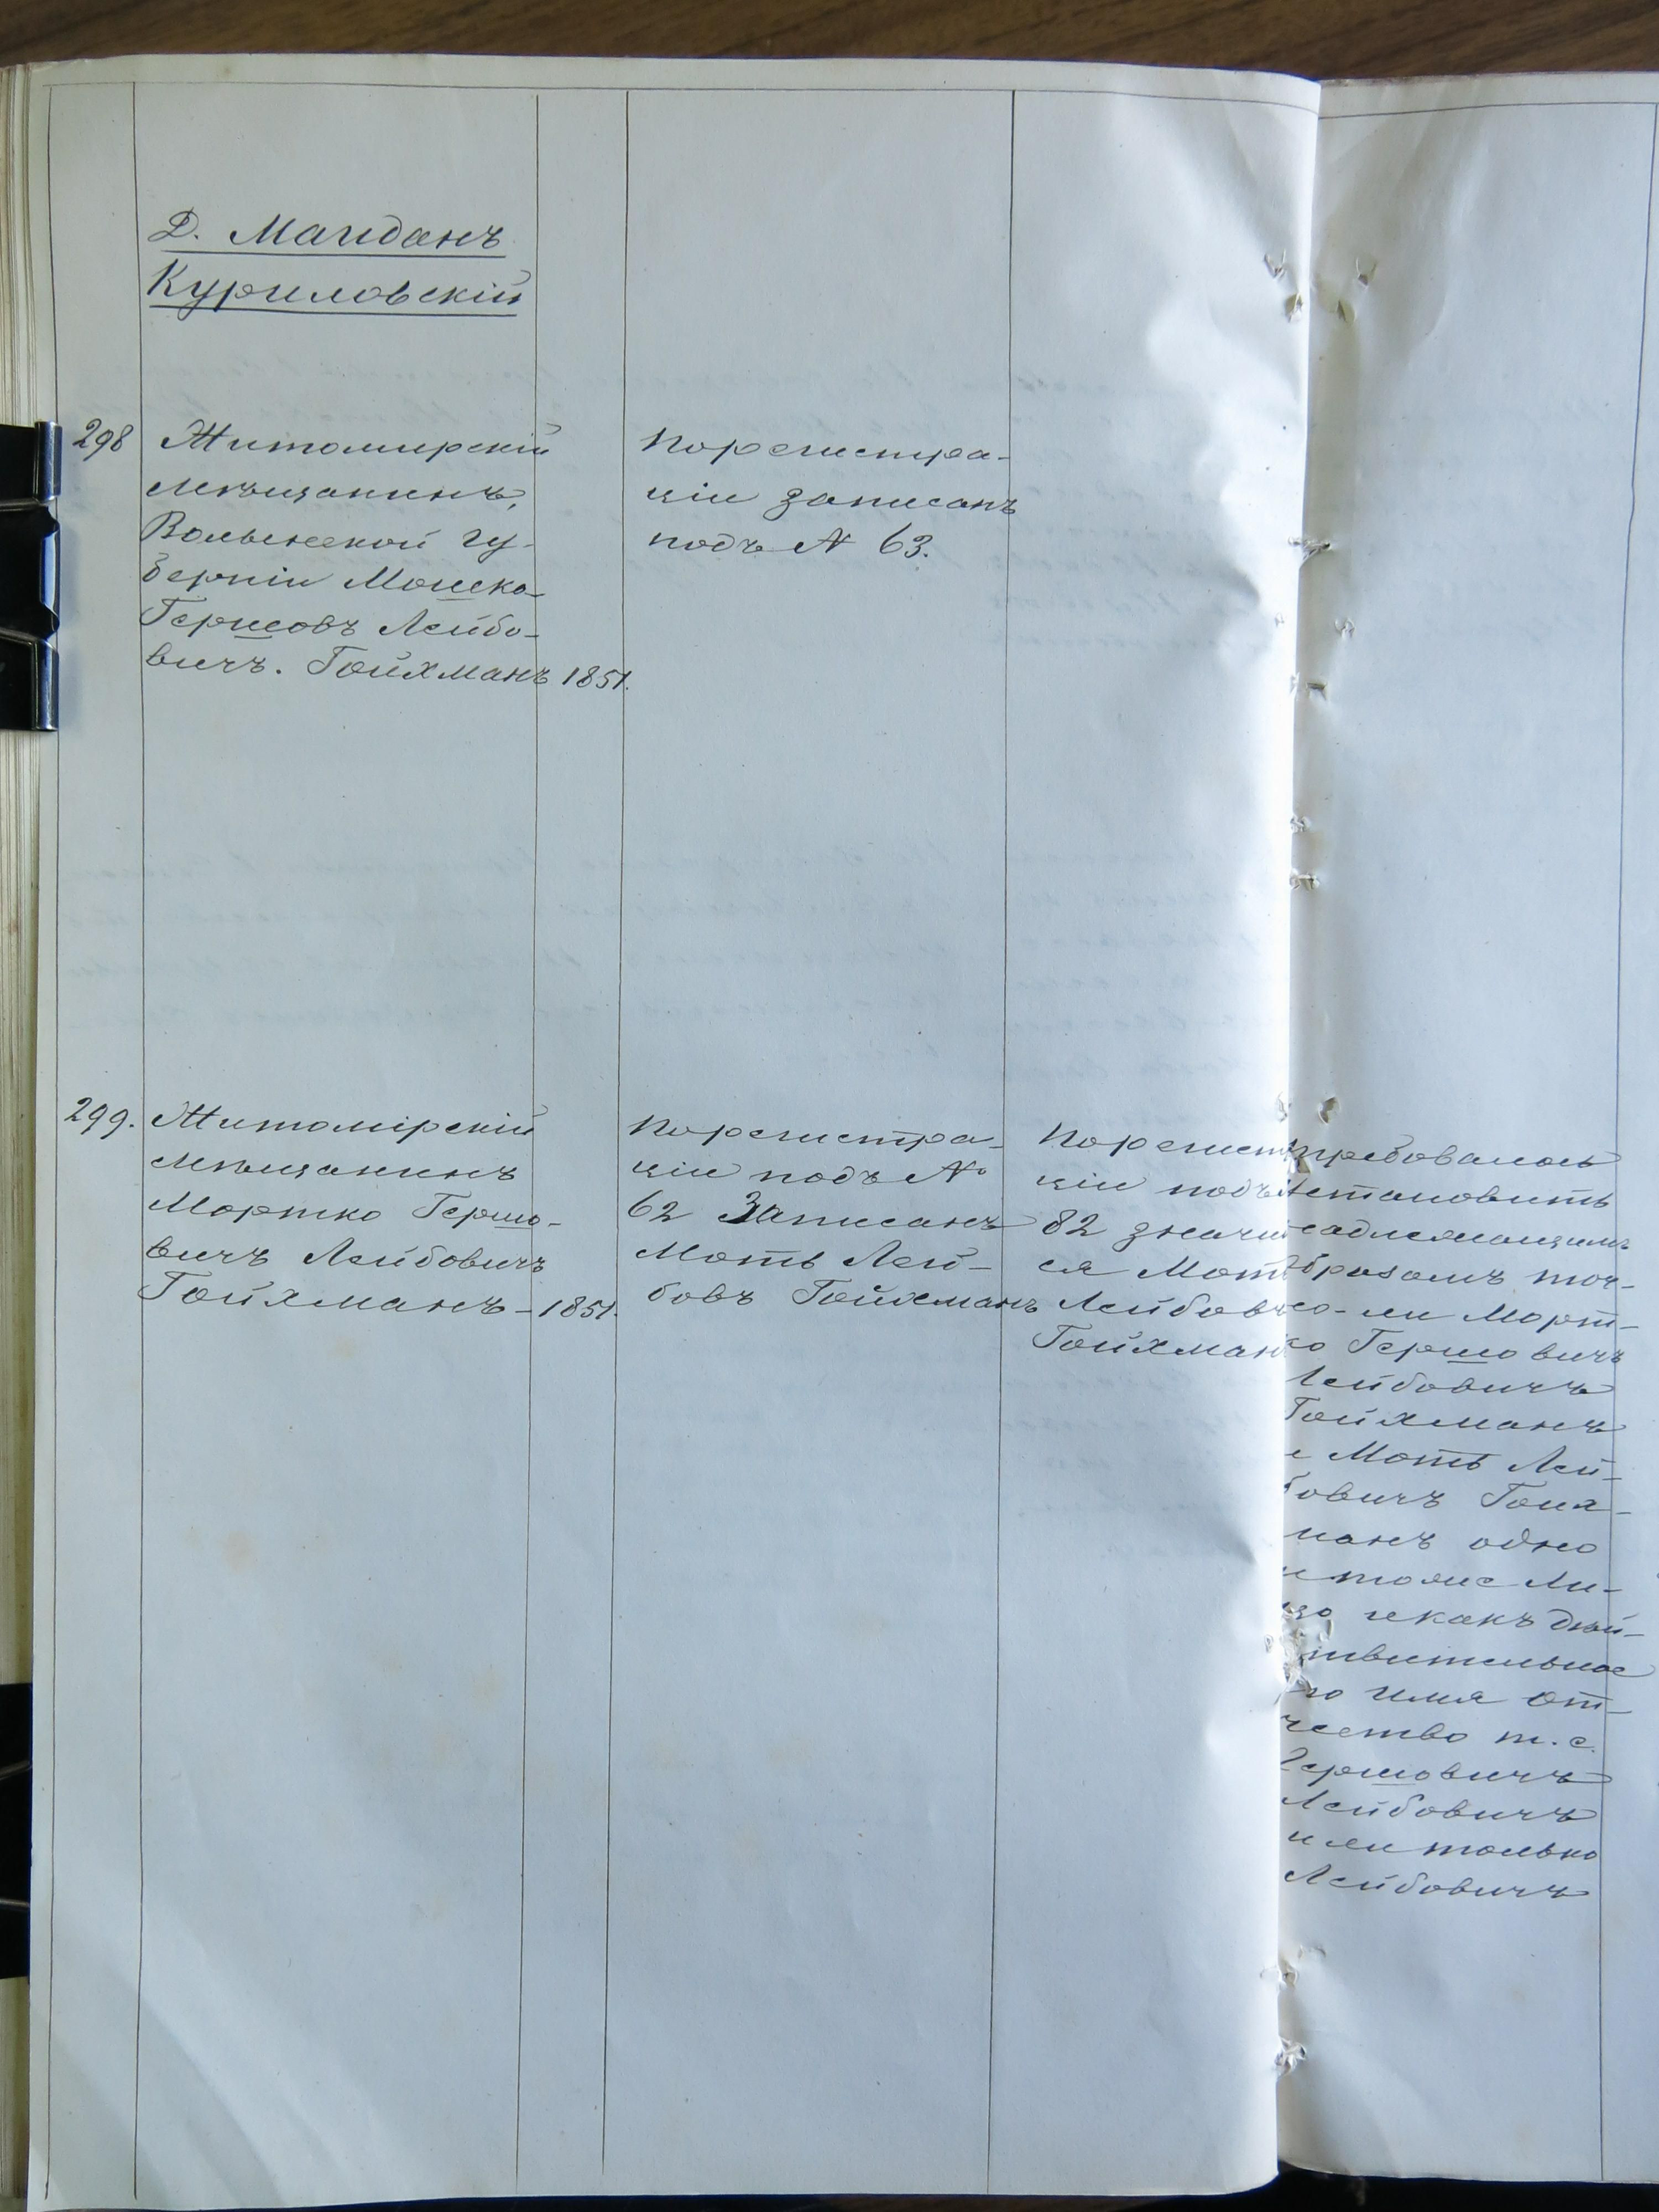 Д. Магиданъ
Куриловскій
298
Житомирскій
мѣщанинъ,
Волынской гу-
берніи Мошко-
Гершовъ Лейбо-
вичъ. Гойхманъ 1851.
По регистра-
ціи записанъ
подъ № 63.
299.
Житомірскій
мѣщанинъ
Мортко Гершо-
вичъ Лейбовичъ
Гойхманъ - 1851.
По регистра-
ціи подъ №
62 Записанъ
Моть Лей-
бовъ Гойхманъ
По регист
ціи подъ
82 значит
ся Моть
Лейбов
Гойхман
требовалось
становить
адлежащимъ
бразомъ тож-
ли Морт-
ко Гершовичъ
Лейбовичъ
Гойхманъ
и Моть Лей-
бовичъ Гойх-
манъ одно
и тоже ли-
цо и какъ дѣй-
твительное
го имя От-
чество т. е.
Гершовичъ
Лейбовичъ
или только
Лейбовичъ